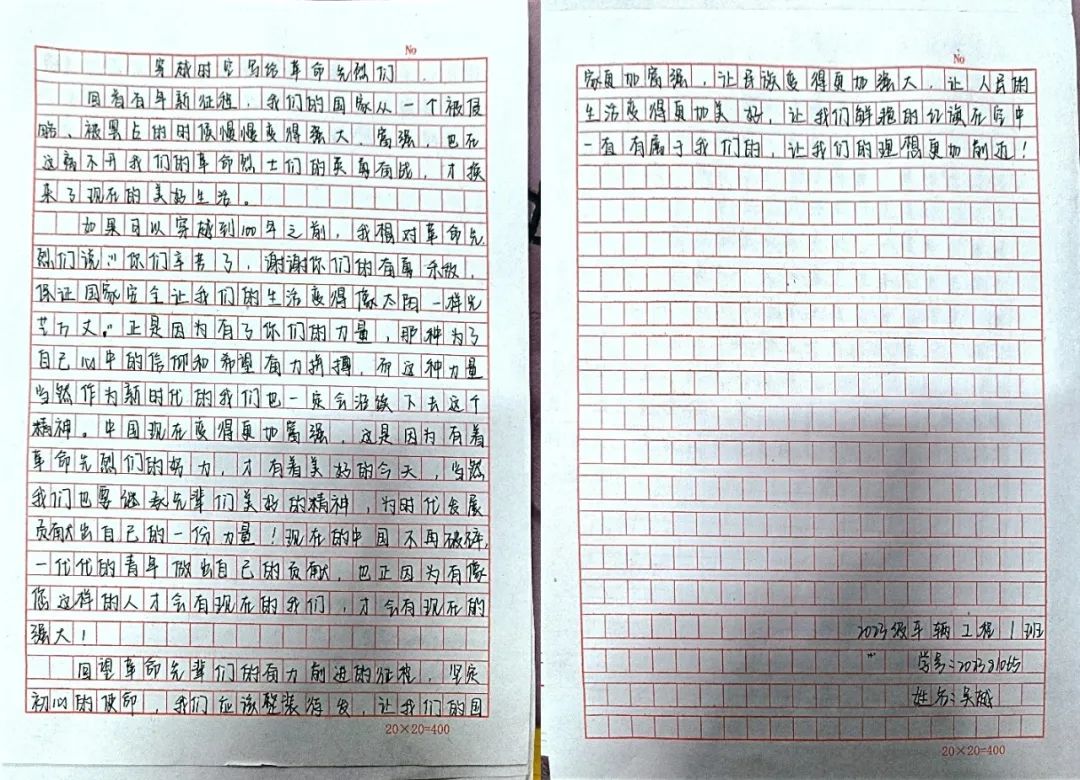 No
穿越时空写给革命先烈们
回首百年新征程，我们的国家从一个被侵
略、被霸占的时候慢慢变得强大、富强，也在
这离不开我们的革命烈士们的英勇奋战，才换
来了现在的美好生活。
如果可以穿越到100年之前，我想对革命先
烈们说："你们辛苦了，谢谢你们的有勇杀敌，
保证国家安全让我们的生活变得像太阳一样光
芒万丈。"正是因为有了你们的力量，那种为了
自己心中的信仰和希望奋力拼搏，而这种力量
当然作为新时代的我们也一定会沿续下去这个
精神。中国现在变得更加富强，这是因为有着
革命先烈们的努力，才有着美好的今天，当然
我们也要继承先辈们美好的精神，为时代发展
贡献出自己的一份力量！现在的中国不再破碎，
一代代的青年做出自己的贡献，也正因为有像
您这样的人才会有现在的我们，才会有现在的
强大！
回望革命先辈们的有力前进的征程，坚定
初心的使命，我们应该整装待发，让我们的国
20×20=400
No
家更加富强，让民族变得更加强大，让人民的
生活变得更加美好，让我们鲜艳的红旗在空中
一直有属于我们的，让我们的理想更加前进！
2023级车辆工程1班
学号：202391065
姓名：吴
20×20=400